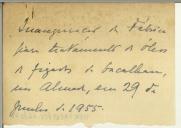 Inauguração da Fábrica
para tratamento de óleos
de fígados de bacalhau,
em Almada, em 29 de
Junho de 1955.